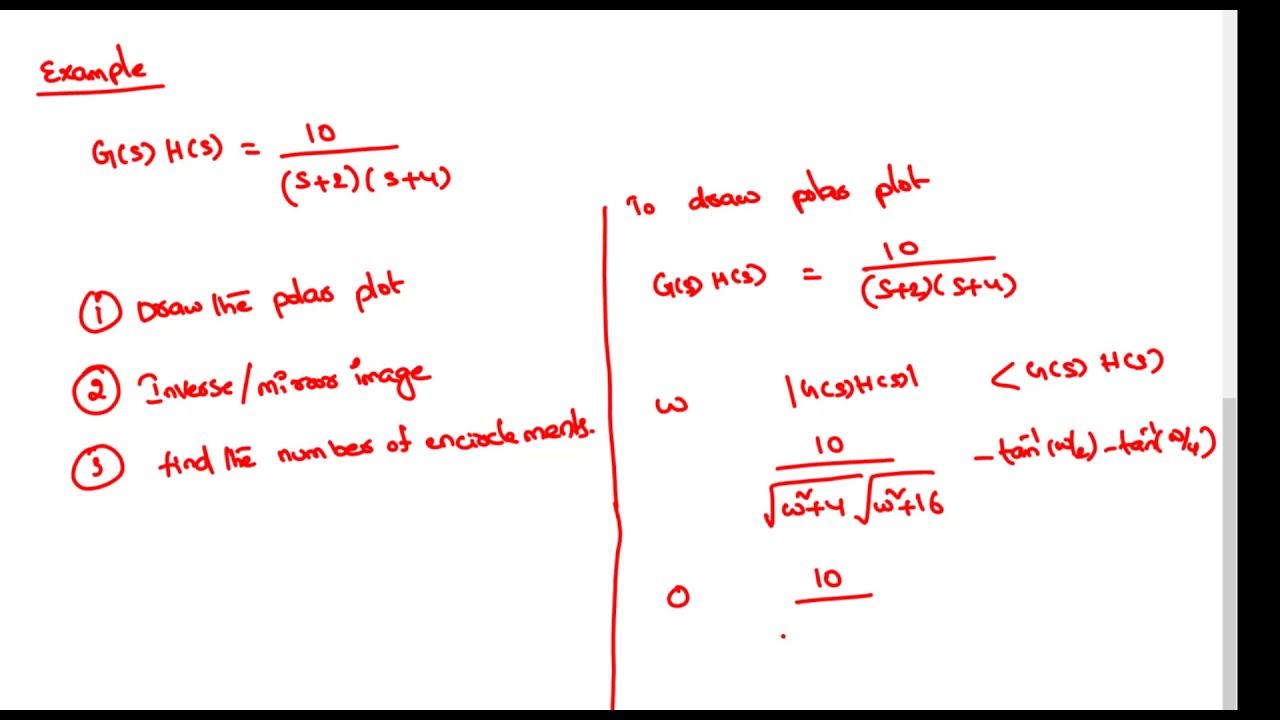 Example
G(s) H(s) = 10 / (s+2)(s+4)
① Draw the polar plot
② Inverse/mirror image
③ find the number of encirclements.
To draw polar plot
G(s) H(s) = 10 / (s+2)(s+4)
ω |G(s)H(s)| <G(s) H(s)
10 / √ω²+4 √ω²+16 -tan⁻¹(ω/2) -tan⁻¹(ω/4)
0 10